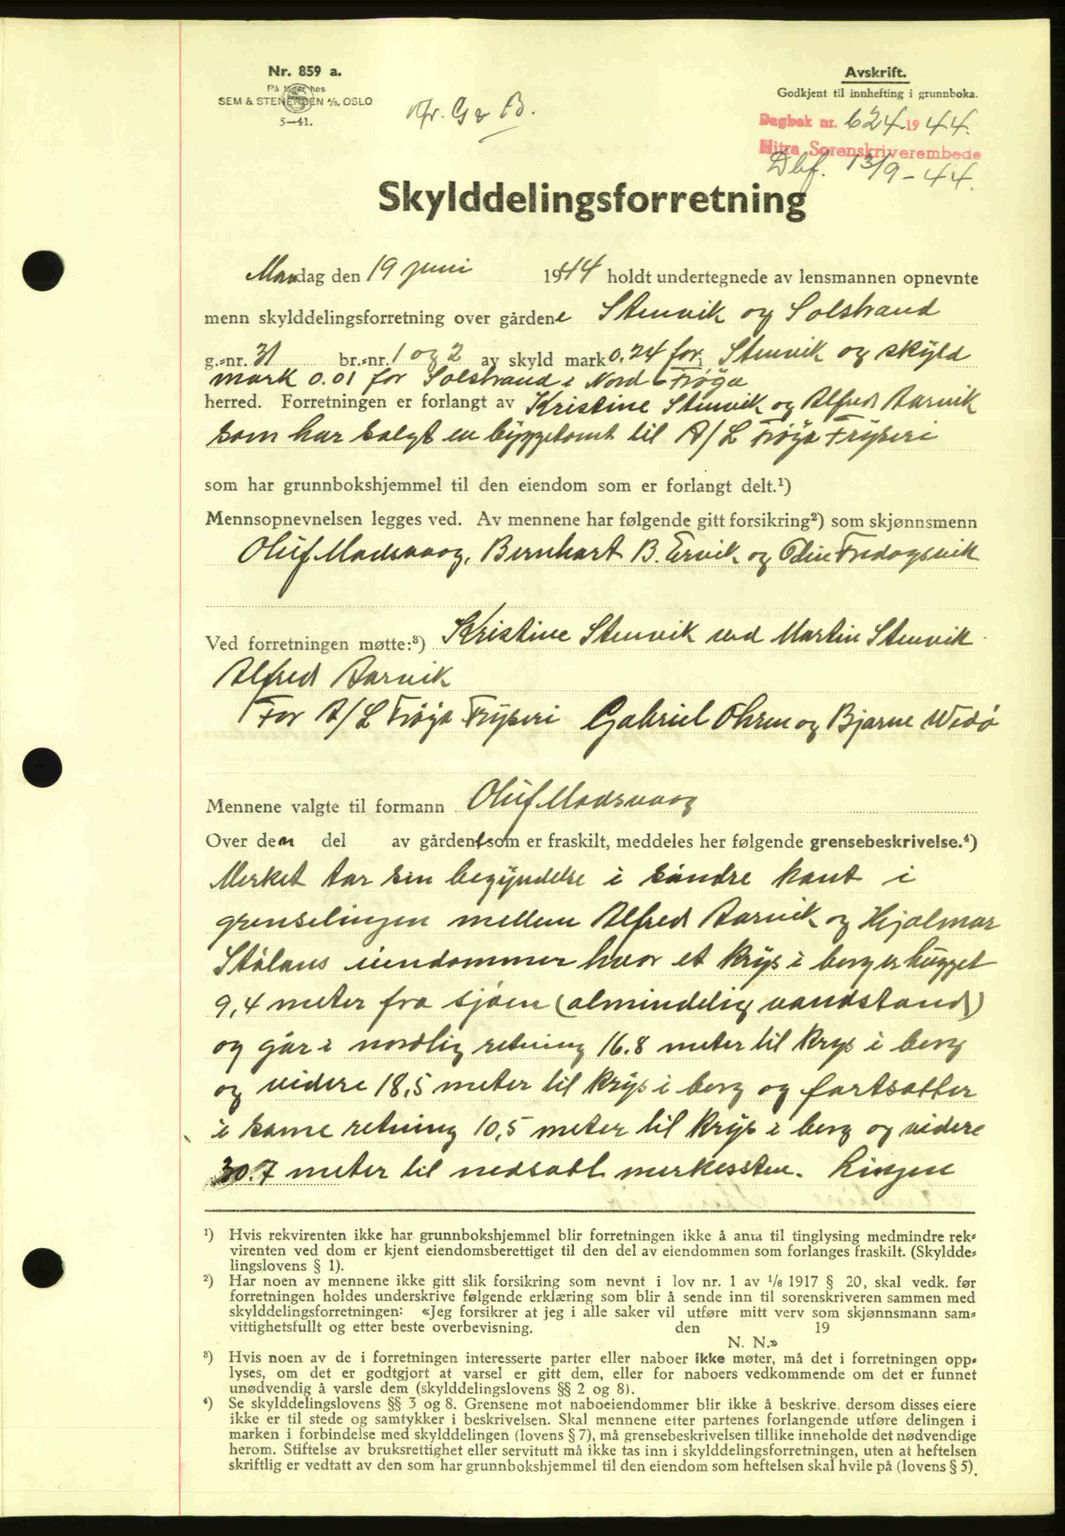 Nr. 859 a.
På lager hos
SEM & STENERSEN A/S, OSLO
5—41.
Nr. G & B.
Avskrift.
Godkjent til innhefting i grunnboka.
Dagbok nr. 624 1944.
Hitra Sorenskriverembede
Dbf. 13/9-44.
Skylddelingsforretning
Mandag den 19 juni 1944 holdt undertegnede av lensmannen opnevnte
menn skylddelingsforretning over gårdene Stenvik og Solstrand
g.-nr. 31 br.-nr. 1 og 2 av skyld mark 0.24 for i Stenvik og skyld
mark 0.01 for Solstrand i Nord-Frøya
herred. Forretningen er forlangt av Kristine Stenvik og Alfred Aarvik
som har solgt en byggetomt til A/L Frøya Fryseri
som har grunnbokshjemmel til den eiendom som er forlangt delt.¹)
Mennsopnevnelsen legges ved. Av mennene har følgende gitt forsikring²) som skjønnsmenn
Oluf Madsvaag, Bernhart B. Ervik og Odin Fredagsvik
Ved forretningen møtte:³) Kristine Stenvik ved Martin Stenvik
Alfred Aarvik
For A/L Frøya Fryseri Gabriel Ohren og Bjarne Wedø
Mennene valgte til formann Oluf Madsvaag
Over den del av gården som er fraskilt, meddeles her følgende grensebeskrivelse.⁴)
Merket tar sin begyndelse i søndre kant i
grenselinjen mellem Alfred Aarvik og Hjalmar
Stølans eiendommer hvor et kryss i berg er hugget
9,4 meter fra sjøen (almindelig vandstand)
og går i nordlig retning 16.8 meter til kryss i berg
og videre 18,5 meter til kryss i berg og fortsetter
i same retning 10,5 meter til kryss i berg og videre
30.7 meter til nedsatt merkessten. Linjen
¹) Hvis rekvirenten ikke har grunnbokshjemmel blir forretningen ikke å anta til tinglysing medmindre rek-
virenten ved dom er kjent eiendomsberettiget til den del av eiendommen som forlanges fraskilt. (Skyldde-
lingslovens § 1).
²) Har noen av mennene ikke gitt slik forsikring som nevnt i lov nr. 1 av 1/6 1917 § 20, skal vedk. før
forretningen holdes underskrive følgende erklæring som blir å sende inn til sorenskriveren sammen med
skylddelingsforretningen: «Jeg forsikrer at jeg i alle saker vil utføre mitt verv som skjønnsmann sam-
vittighetsfullt og etter beste overbevisning. den 19
N. N.»
³) Hvis noen av de i forretningen interesserte parter eller naboer ikke møter, må det i forretningen opp-
lyses, om det er godtgjort at varsel er gitt dem, eller for naboers vedkommende om det er funnet
unødvendig å varsle dem (skylddelingslovens §§ 2 og 8).
⁴) Se skylddelingslovens §§ 3 og 8. Grensene mot naboeiendommer blir ikke å beskrive, dersom disses eiere
ikke er til stede og samtykker i beskrivelsen. Skal mennene etter partenes forlangende utføre delingen i
marken i forbindelse med skylddelingen (lovens § 7), må grensebeskrivelsen tillike inneholde det nødvendige
herom. Stiftelse av bruksrettighet eller servitutt må ikke tas inn i skylddelingsforretningen, uten at heftelsen
skriftlig er vedtatt av den som har grunnbokshjemmel til den eiendom som heftelsen skal hvile på (lovens § 5).